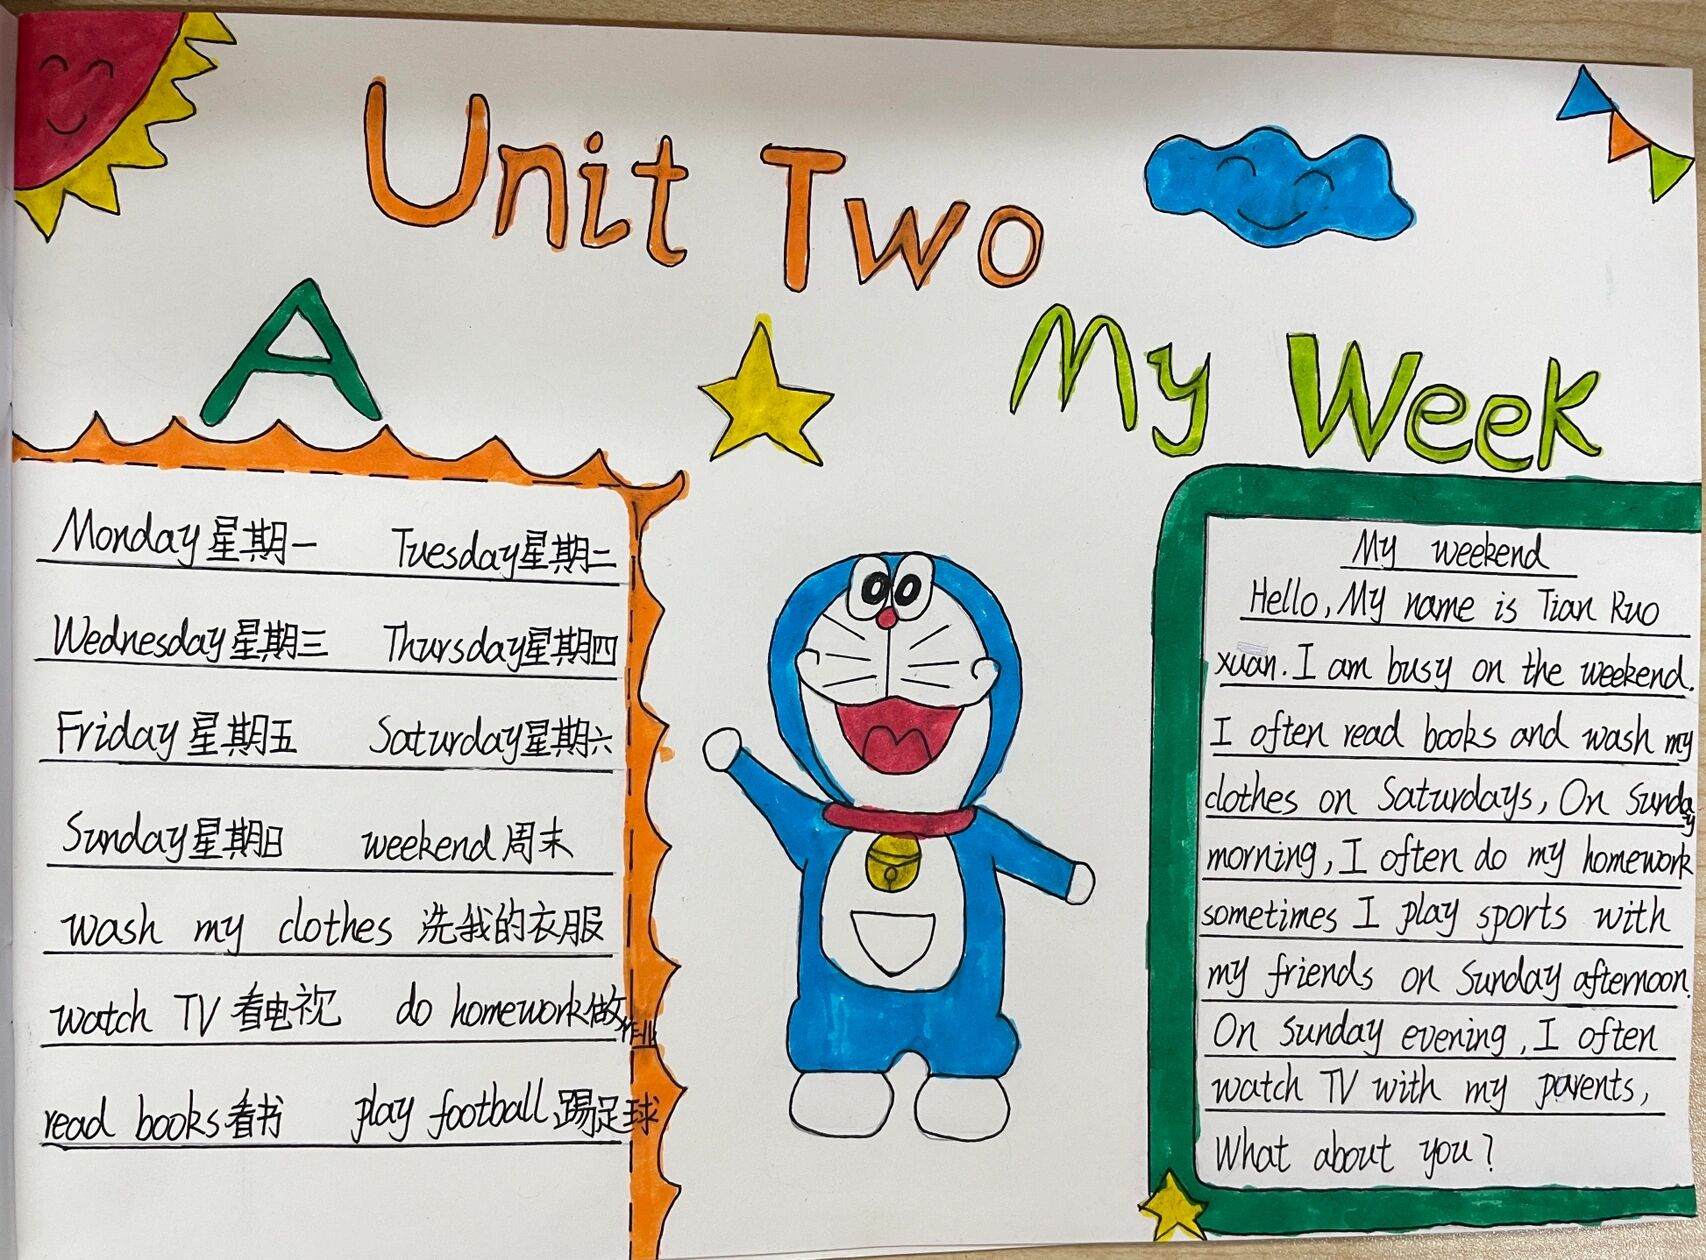 Unit Two
A
My Week
Monday星期一 Tuesday星期二
Wednesday星期三 Thursday星期四
Friday星期五 Saturday星期六
Sunday星期日 weekend周末
wash my clothes 洗我的衣服
watch TV 看电视 do homework做作业
read books看书 play football踢足球
My weekend
Hello, My name is Tian Ruo
xuan. I am busy on the weekend.
I often read books and wash my
clothes on Saturdays, On Sunday
morning, I often do my homework
sometimes I play sports with
my friends on Sunday afternoon.
On Sunday evening, I often
watch TV with my parents,
What about you?